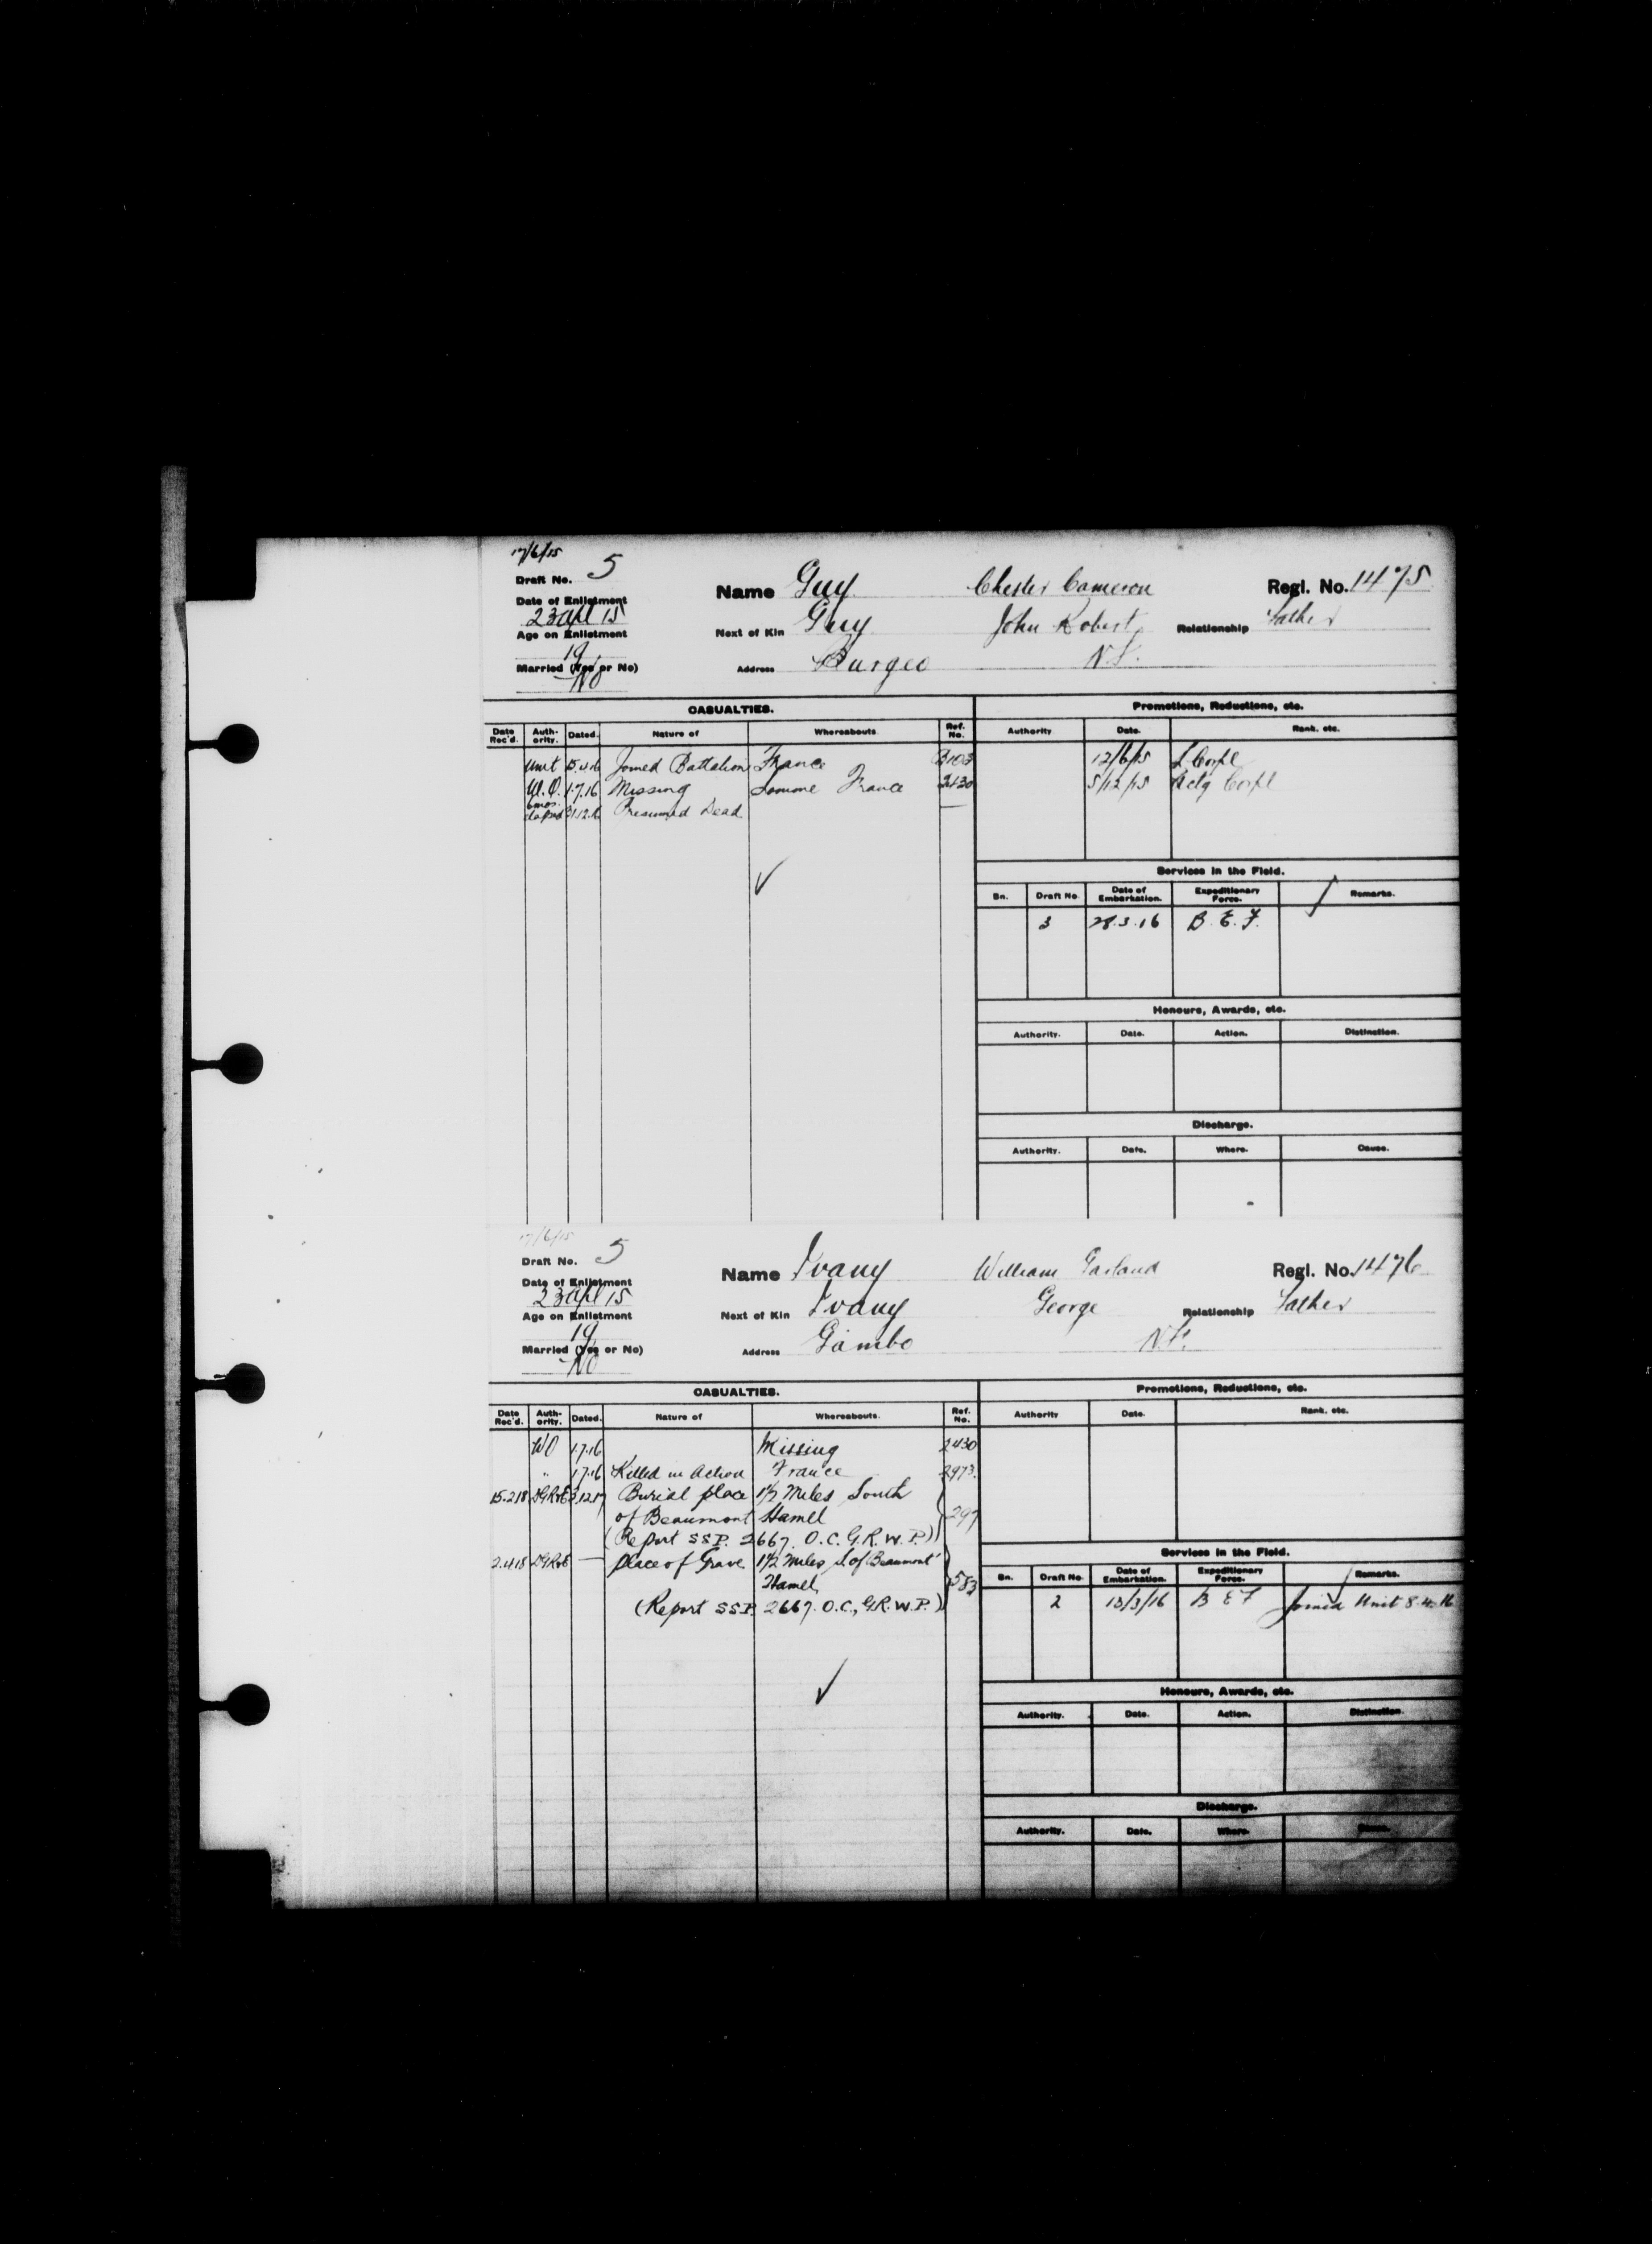 17/6/15
Draft No. 5
Name Guy Chester Cameron Regl. No. 1475
Date of Enlistment
23 Apl 15
Next of Kin Guy John Robert Relationship Father
Age on Enlistment
19
Address Burgeo N.F.
Married (Yes or No)
No
CASUALTIES. Promotions, Reductions, etc.
Date Rec'd. Auth-ority. Dated. Nature of Whereabouts Ref. No. Authority Date. Rank, etc.
Unit 15.4.16 Joined Battalion France B103 12/6/15 L Corpl
W.O. 1.7.16 Missing Somme France 2430 5/12/15 Actg Corpl
6 mos. 31.12.16 Presumed Dead
Services in the Field.
Bn. Draft No. Date of Embarkation. Expeditionary Force. Remarks.
3 28.3.16 B.E.F.
Honours, Awards, etc.
Authority. Date. Action. Distinction.
Discharge.
Authority. Date. Where. Cause.
17/6/15
Draft No. 5
Name Ivany William Garland Regl. No. 1476
Date of Enlistment
23 Apl 15
Next of Kin Ivany George Relationship Father
Age on Enlistment
19
Address Gambo N.F.
Married (Yes or No)
No
CASUALTIES. Promotions, Reductions, etc.
Date Rec'd. Auth-ority. Dated. Nature of Whereabouts. Ref. No. Authority Date. Rank, etc.
WO 1.7.16 Missing 2430
" 1.7.16 Killed in Action France 2973.
15.2.18 DGR&E 3.12.17 Burial place 1½ Miles South
of Beaumont Hamel 297
(Report SSP. 2667. O.C. G.R.W.P.)
2.4.18 DGR&E — place of Grave 1½ Miles S. of Beaumont
Hamel 583
(Report SSP. 2667. O.C., G.R.W.P.)
Services in the Field.
Bn. Draft No. Date of Embarkation. Expeditionary Force. Remarks.
2 13/3/16 B E F Joined Unit 8.4.16
Honours, Awards, etc.
Authority. Date. Action. Distinction.
Discharge.
Authority. Date. Where. Cause.